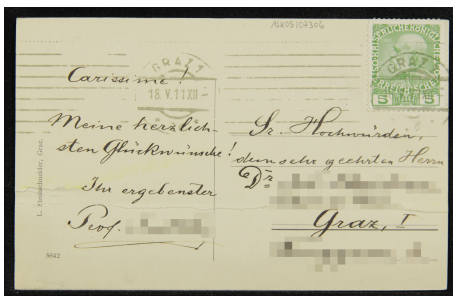 ASK05107306
GRAZ 1
18.V.11 XII
5 5
Carissime!
Meine herzlich-
sten Glückwünsche!
Ihr ergebenster
Prof.
Sr. Hochwürden,
dem sehr geehrten Herrn
Dr.
Graz, I
5642